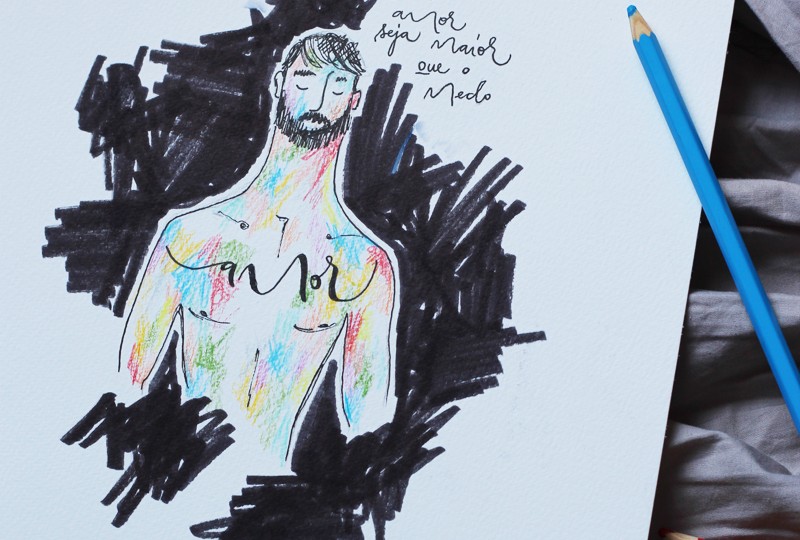 amor
seja maior
que o
medo
amor